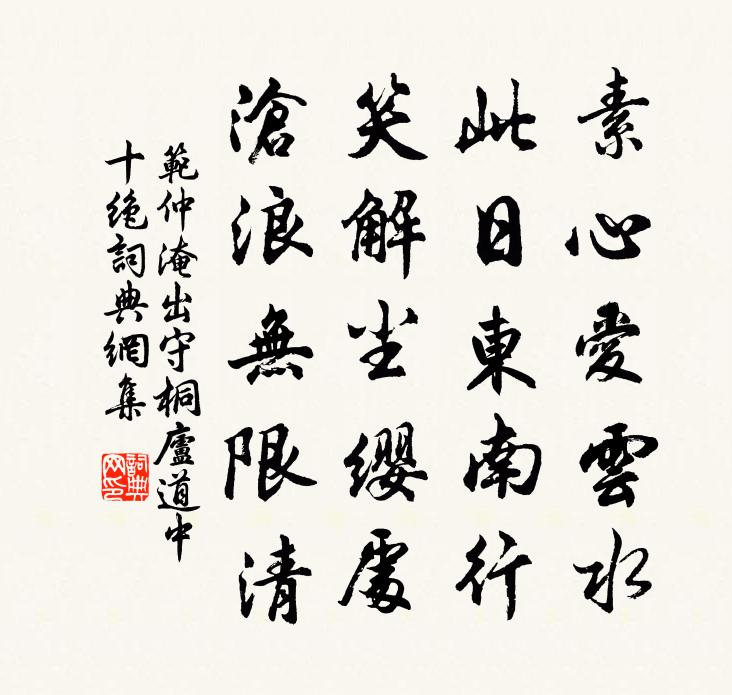 素心愛雲水
此日東南行
笑解尘缨處
滄浪無限清
範仲淹出守桐廬道中
十绝詞典網集
詞典网印